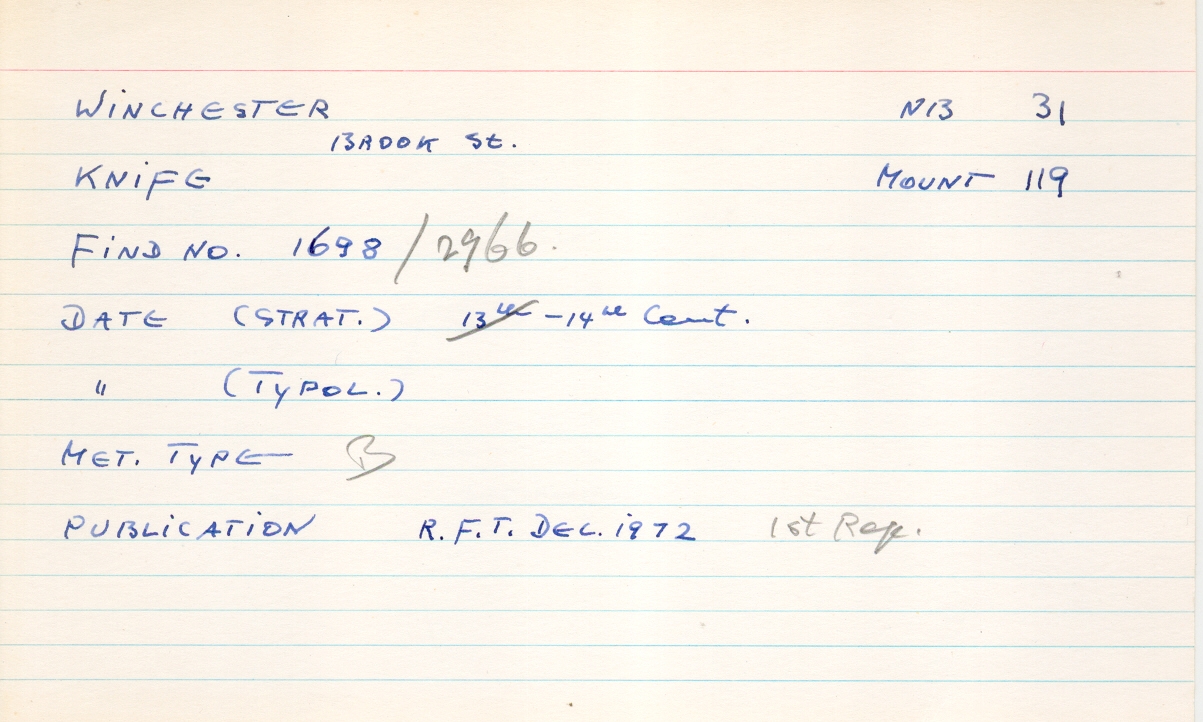 WINCHESTER NB 31
BROOK St.
KNIFE MOUNT 119
FIND NO. 1698 / 2966.
DATE (STRAT.) 13th - 14th Cent.
" (TYPOL.)
MET. TYPE B
PUBLICATION R.F.T. DEC. 1972 1st Rep.